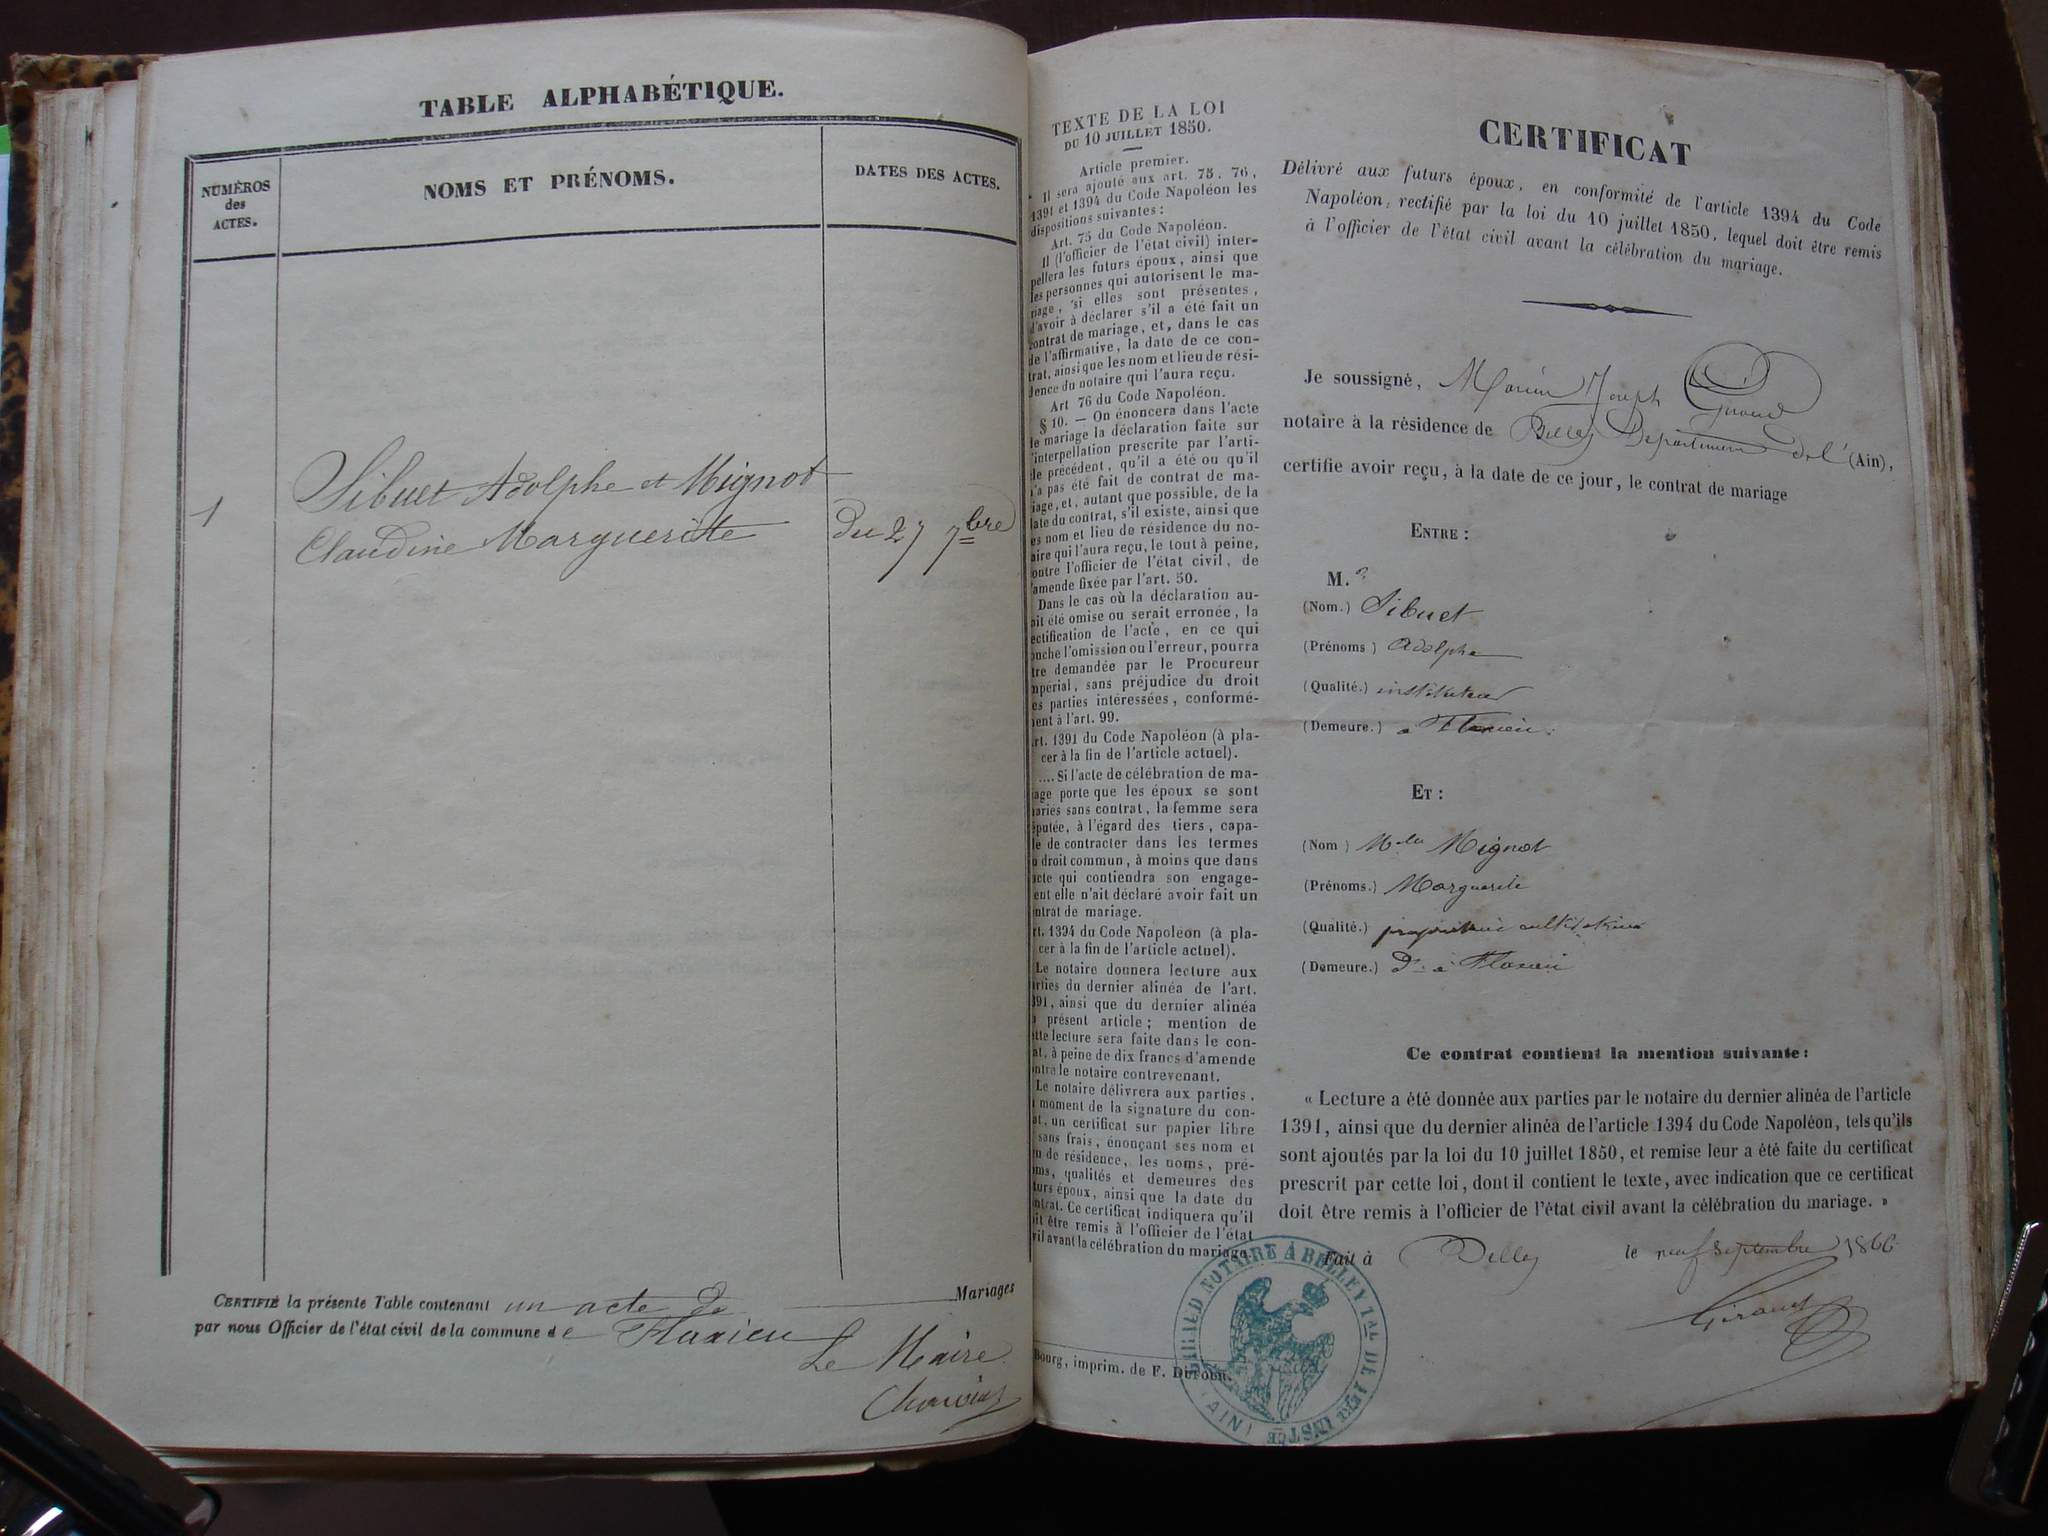 TABLE ALPHABÉTIQUE.
NUMÉROS
des
ACTES.
NOMS ET PRÉNOMS.
DATES DES ACTES.
1
Sibuet Adolphe et Mignot
Claudine Margueritte
du 27 7bre
CERTIFIÉ la présente Table contenant un acte de Mariages
par nous Officier de l'état civil de la commune de Flaxieu
Le Maire
TEXTE DE LA LOI
DU 10 JUILLET 1850.
Article premier.
Il sera ajouté aux art. 75, 76,
1391 et 1394 du Code Napoléon les
dispositions suivantes :
Art. 75 du Code Napoléon.
Il (l'officier de l'état civil) inter-
pellera les futurs époux, ainsi que
les personnes qui autorisent le ma-
riage, si elles sont présentes,
d'avoir à déclarer s'il a été fait un
contrat de mariage, et, dans le cas
de l'affirmative, la date de ce con-
trat, ainsi que les nom et lieu de rési-
dence du notaire qui l'aura reçu.
Art 76 du Code Napoléon.
§ 10. — On énoncera dans l'acte
de mariage la déclaration faite sur
l'interpellation prescrite par l'arti-
cle précédent, qu'il a été ou qu'il
n'a pas été fait de contrat de ma-
riage, et, autant que possible, de la
date du contrat, s'il existe, ainsi que
es nom et lieu de résidence du no-
aire qui l'aura reçu, le tout à peine,
ontre l'officier de l'état civil, de
'amende fixée par l'art. 50.
Dans le cas où la déclaration au-
ait été omise ou serait erronée, la
ectification de l'acte, en ce qui
ouche l'omission ou l'erreur, pourra
tre demandée par le Procureur
mpérial, sans préjudice du droit
es parties intéressées, conformé-
ment à l'art. 99.
rt. 1391 du Code Napoléon (à pla-
cer à la fin de l'article actuel).
.... Si l'acte de célébration de ma-
iage porte que les époux se sont
mariés sans contrat, la femme sera
éputée, à l'égard des tiers, capa-
le de contracter dans les termes
u droit commun, à moins que dans
acte qui contiendra son engage-
ent elle n'ait déclaré avoir fait un
ontrat de mariage.
rt. 1394 du Code Napoléon (à pla-
cer à la fin de l'article actuel).
Le notaire donnera lecture aux
arties du dernier alinéa de l'art.
391, ainsi que du dernier alinéa
u présent article ; mention de
ette lecture sera faite dans le con-
at, à peine de dix francs d'amende
ontre le notaire contrevenant.
Le notaire délivrera aux parties,
u moment de la signature du con-
at, un certificat sur papier libre
sans frais, énonçant ses nom et
eu de résidence, les noms, pré-
oms, qualités et demeures des
turs époux, ainsi que la date du
ontrat. Ce certificat indiquera qu'il
oit être remis à l'officier de l'état
vil avant la célébration du mariage.
Bourg, imprim. de F. DUFOUR.
CERTIFICAT
Délivré aux futurs époux, en conformité de l'article 1394 du Code
Napoléon, rectifié par la loi du 10 juillet 1850, lequel doit être remis
à l'officier de l'état civil avant la célébration du mariage.
Je soussigné, Marin Joseph Giraud
notaire à la résidence de Belley Département de l' (Ain),
certifie avoir reçu, à la date de ce jour, le contrat de mariage
ENTRE :
M.
(Nom.) Sibuet
(Prénoms) Adolphe
(Qualité.) instituteur
(Demeure.) à Flaxieu.
ET :
(Nom) Melle Mignot
(Prénoms.) Marguerite
(Qualité.) propriétaire cultivatrice
(Demeure.) Dt à Flaxieu
Ce contrat contient la mention suivante :
« Lecture a été donnée aux parties par le notaire du dernier alinéa de l'article
1391, ainsi que du dernier alinéa de l'article 1394 du Code Napoléon, tels qu'ils
sont ajoutés par la loi du 10 juillet 1850, et remise leur a été faite du certificat
prescrit par cette loi, dont il contient le texte, avec indication que ce certificat
doit être remis à l'officier de l'état civil avant la célébration du mariage. »
Fait à Belley le neuf septembre 1866
Giraud
GIRAUD NOTAIRE À BELLEY TAL DE 1ERE INSTCE (AIN)